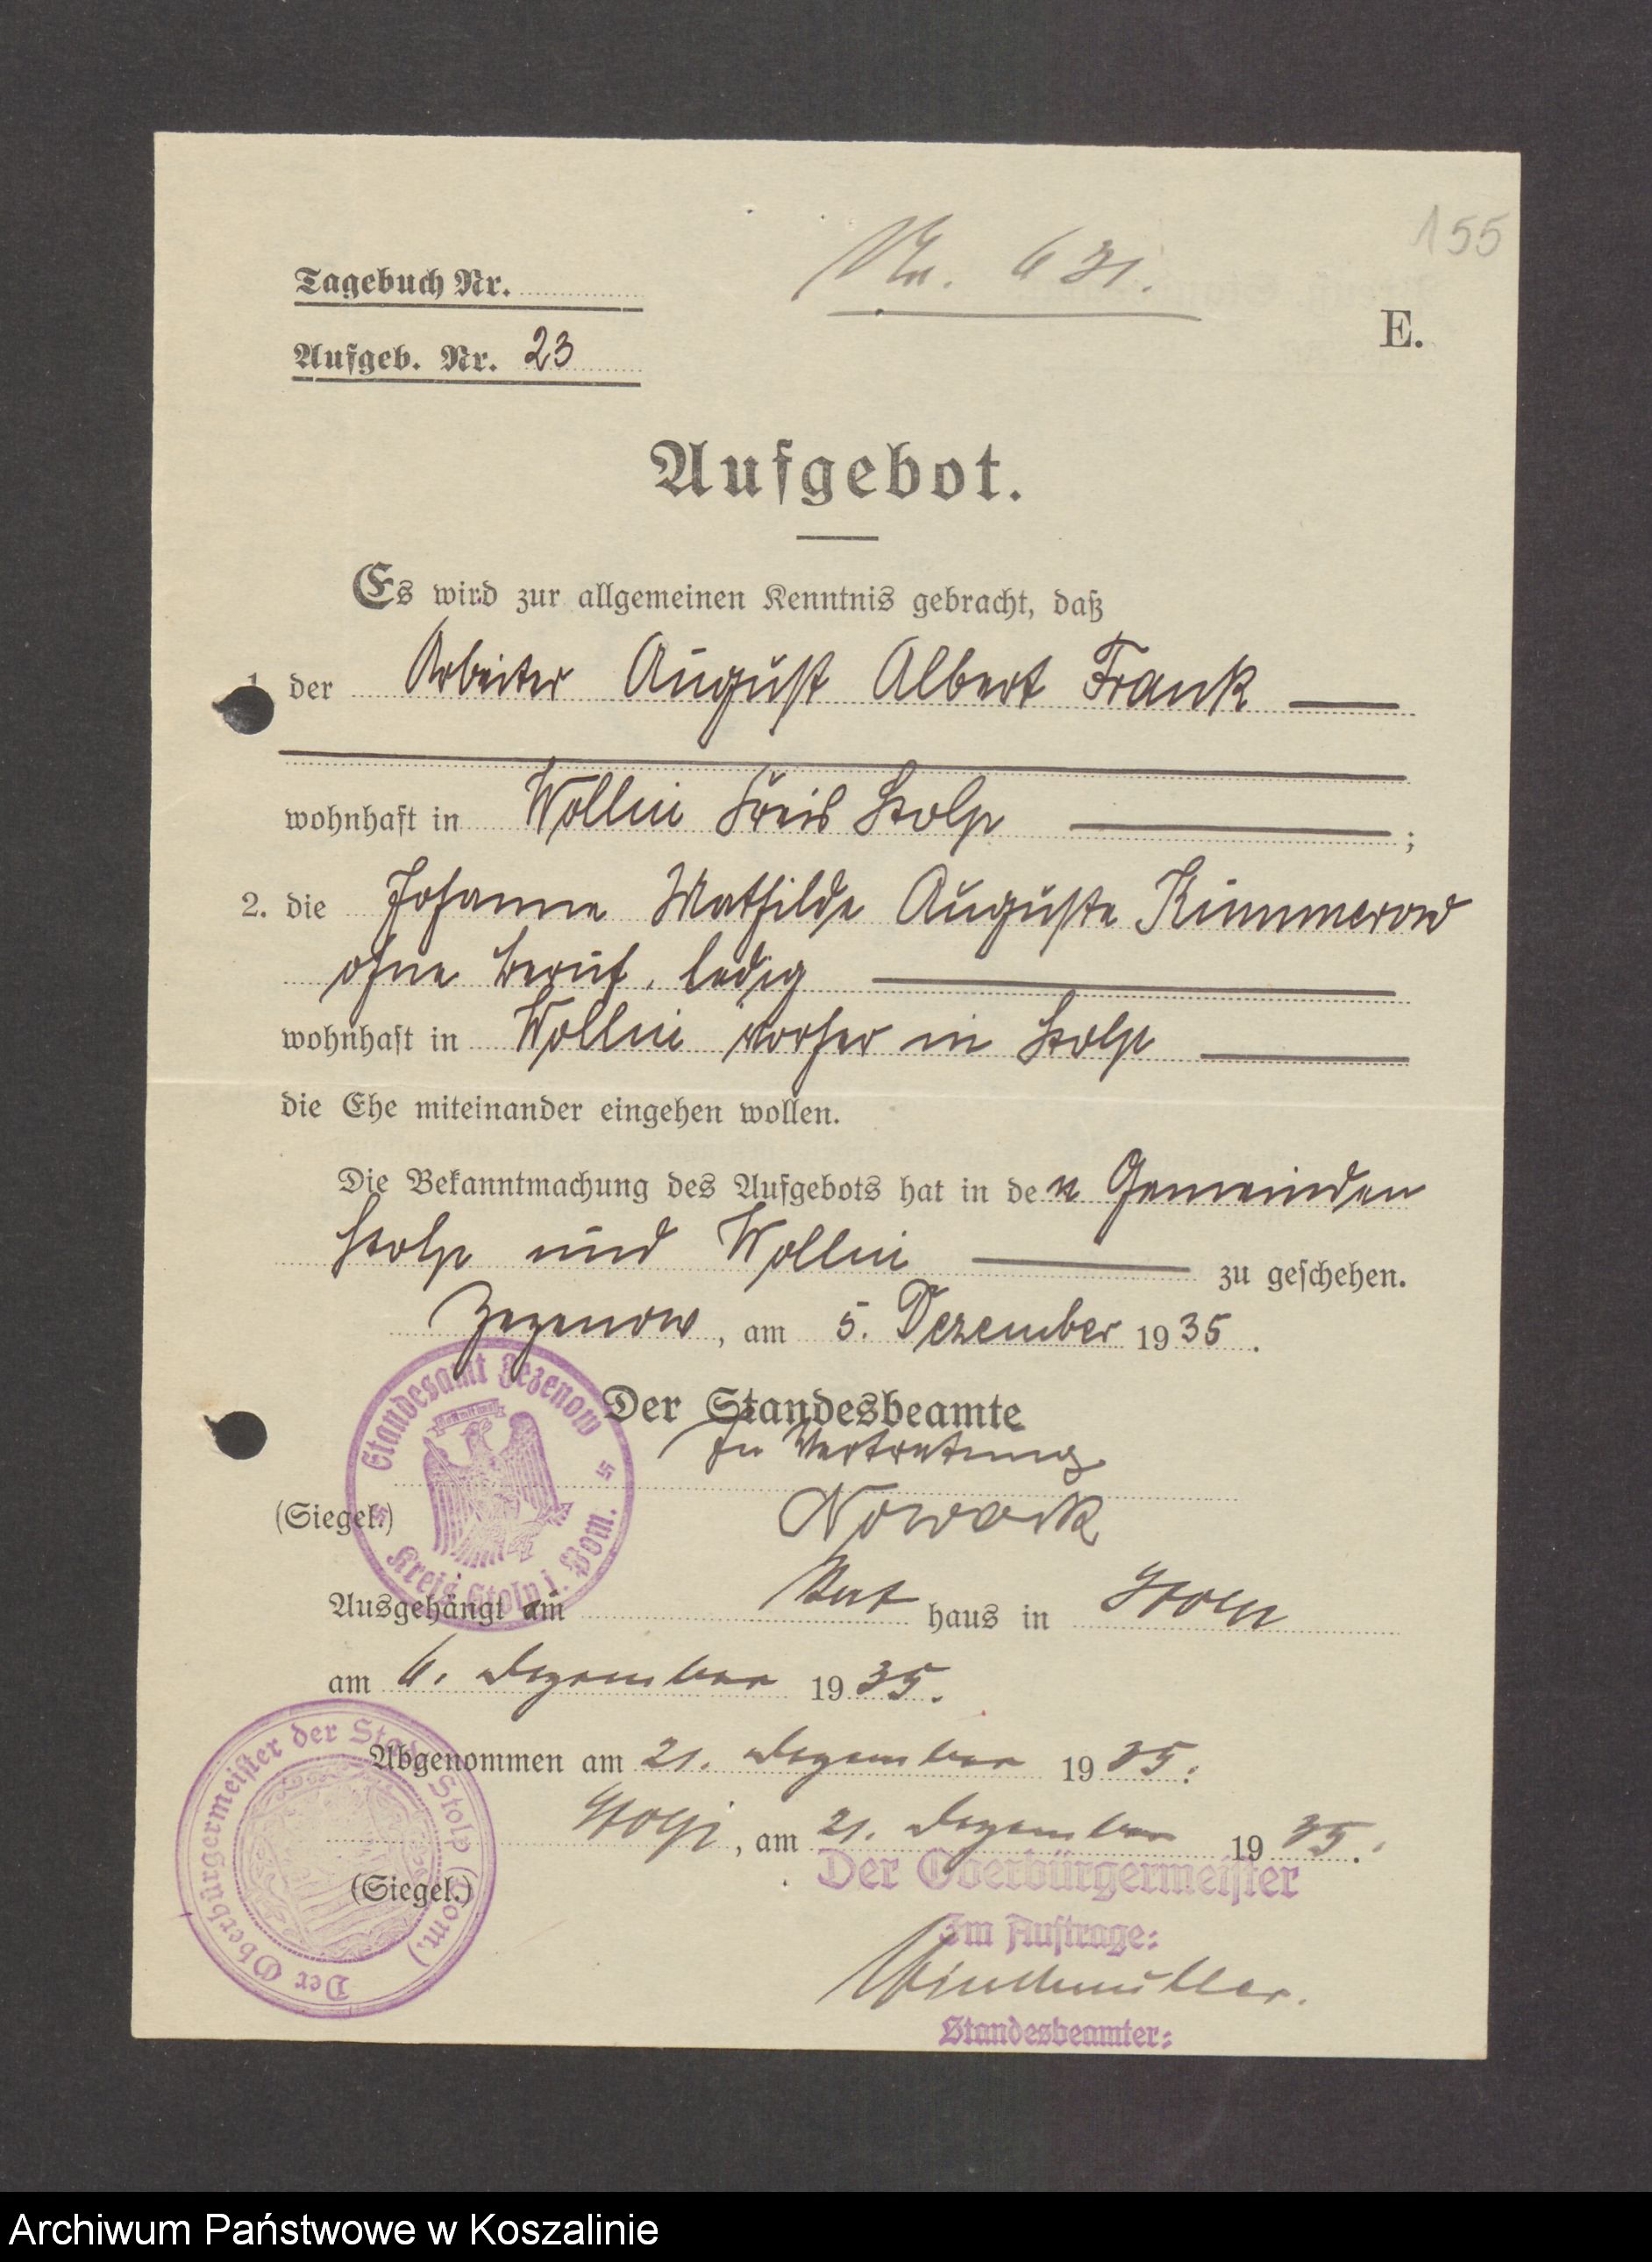 155
Nr. 631.
Tagebuch Nr.
E.
Aufgeb. Nr. 23
Aufgebot.
Es wird zur allgemeinen Kenntnis gebracht, daß
1. der Arbeiter August Albert Frank
wohnhaft in Wollin Kreis Stolp ;
2. die Johanne Mathilde Auguste Kummerow
ohne Beruf, ledig
wohnhaft in Wollin vorher in Stolp
die Ehe miteinander eingehen wollen.
Die Bekanntmachung des Aufgebots hat in den Gemeinden
Stolp und Wollin zu geschehen.
Zezenow, am 5. Dezember 1935.
Standesamt Zezenow
Kreis Stolp i. Pom.
Der Standesbeamte
In Vertretung
(Siegel.)
Nowack
Ausgehängt am Rathaus in Stolp
am 6. Dezember 1935.
Abgenommen am 21. Dezember 1935.
Stolp, am 21. Dezember 1935.
Der Oberbürgermeister der Stadt Stolp (Pom.)
(Siegel.)
Der Oberbürgermeister
Im Auftrage:
Standesbeamter:
Archiwum Państwowe w Koszalinie